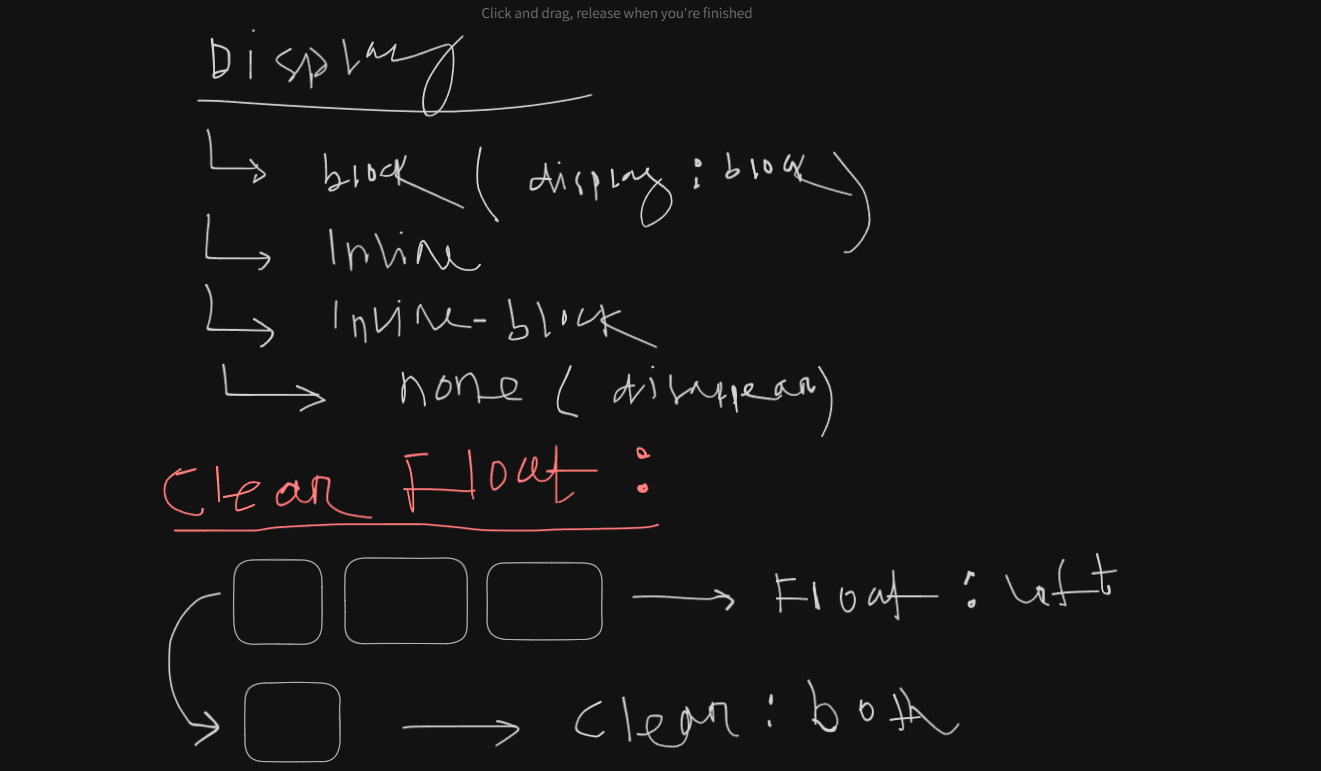 Click and drag, release when you're finished
Display
block (display : block)
Inline
Inline-block
none (disappear)
Clear Float :
Float : left
Clear : both